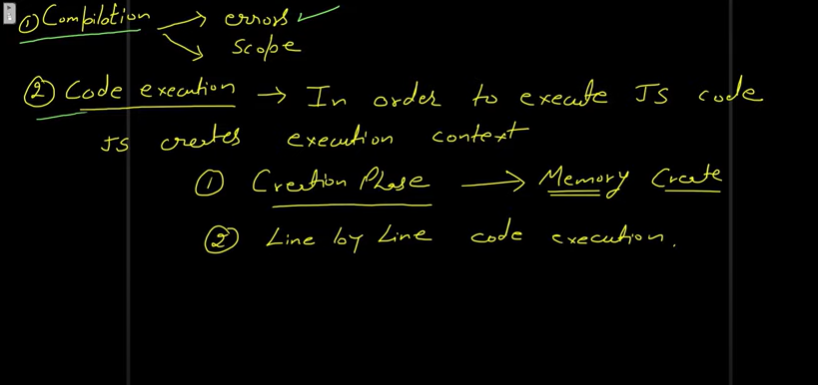 ① Compilation → errors ✓
→ Scope
② Code execution → In order to execute JS code
JS creates execution context
① Creation Phase → Memory Create
② Line by Line code execution.